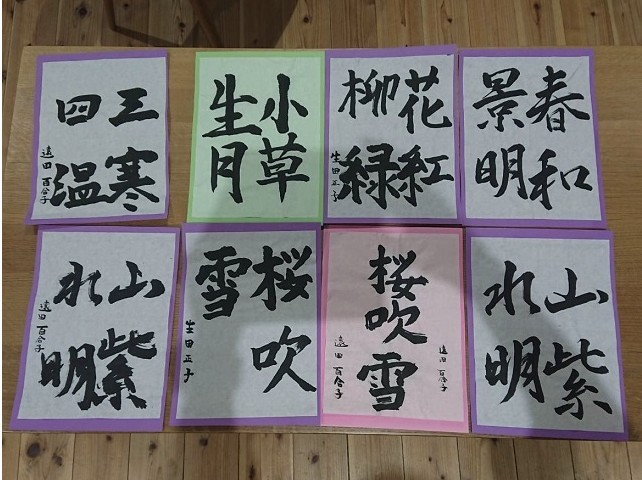 三寒
四温
遠田 百合子
小草
生月
花紅
柳緑
生田正子
春和
景明
山紫
水明
遠田 百合子
桜吹
雪
生田正子
遠田 百合子
桜吹雪
遠田 百合子
山紫
水明